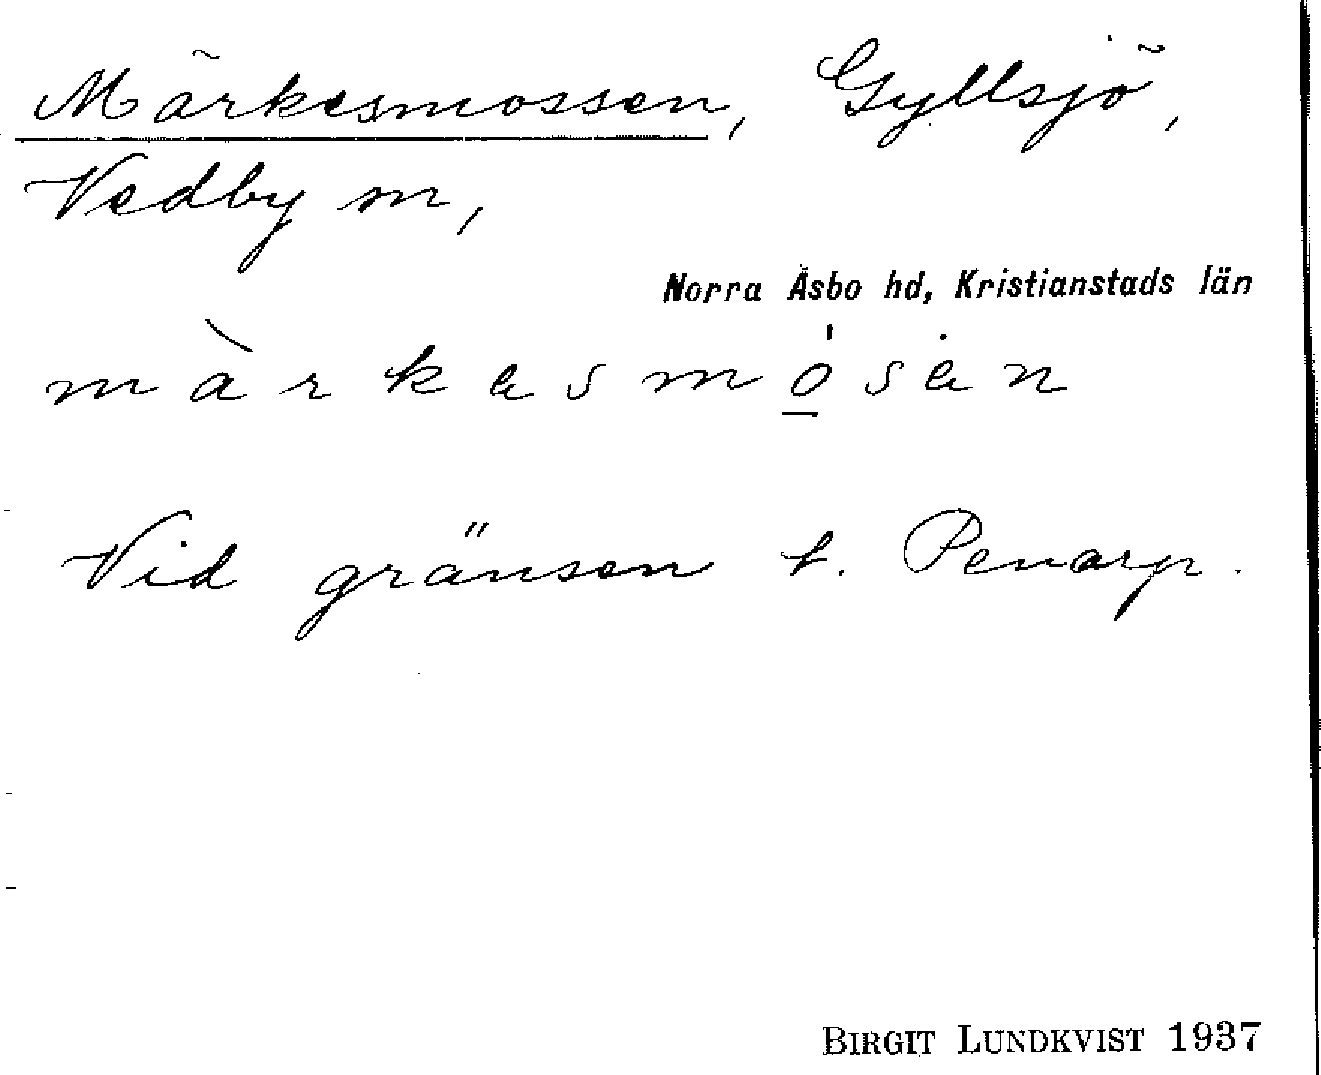 Märkesmossen, Gyllsjö,
Vedby sn,
Norra Åsbo hd, Kristianstads län
màrkesmo̱sen
Vid gränsen t. Penarp.
BIRGIT LUNDKVIST 1937